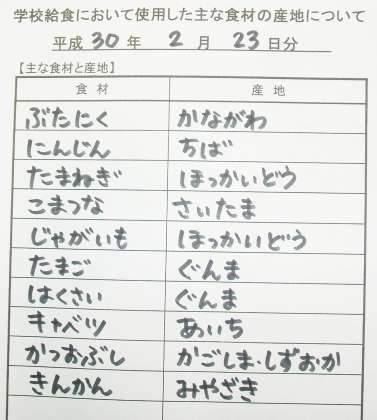 学校給食において使用した主な食材の産地について
平成 30 年 2 月 23 日分
【主な食材と産地】
食材 産地
ぶたにく かながわ
にんじん ちば
たまねぎ ほっかいどう
こまつな さいたま
じゃがいも ほっかいどう
たまご ぐんま
はくさい ぐんま
キャベツ あいち
かつおぶし かごしま・しずおか
きんかん みやざき